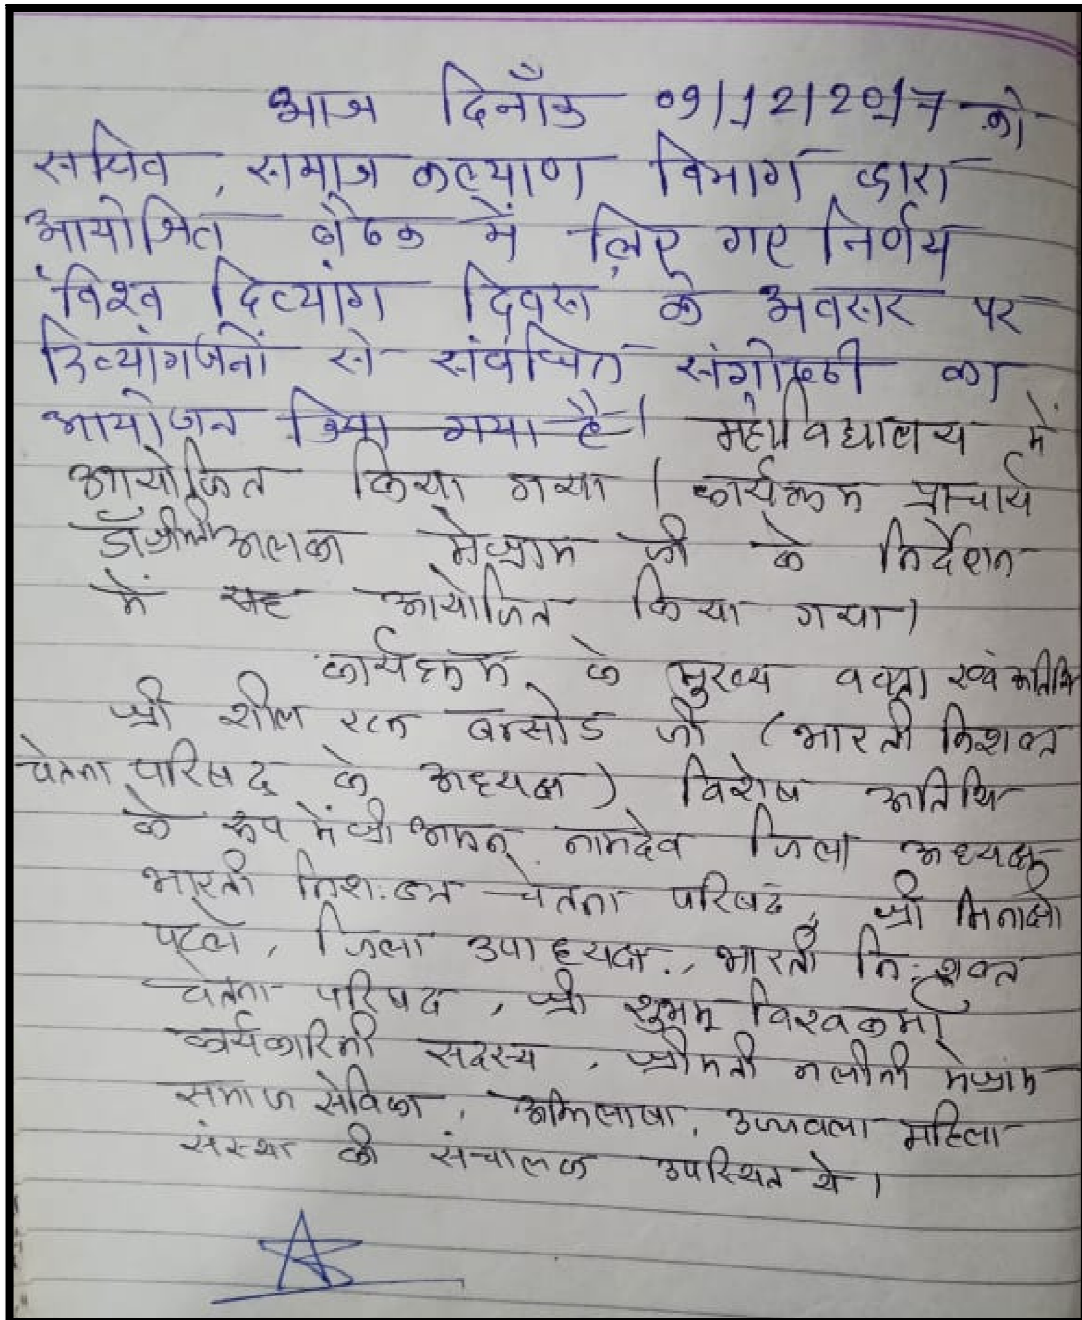 आज दिनाँक 09/12/2017 को
सचिव, समाज कल्याण विभाग द्वारा
आयोजित बैठक में लिए गए निर्णय
विश्व दिव्यांग दिवस के अवसर पर
दिव्यांगजनों से संबंधित संगोष्ठी का
आयोजन किया गया है। महाविद्यालय में
आयोजित किया गया। कार्यक्रम प्राचार्य
डॉ श्रीमती अलका मेश्राम जी के निर्देशन
में यह आयोजित किया गया।
कार्यक्रम के मुख्य वक्ता एवं अतिथि
श्री शील रत्न बन्सोड जी (भारती निशक्त
चेतना परिषद के अध्यक्ष) विशेष अतिथि
के रूप में श्री अमन नामदेव जिला अध्यक्ष
भारती निश:क्त चेतना परिषद, श्री मिनाक्षी
पटले, जिला उपाध्यक्ष, भारती नि:शक्त
चेतना परिषद, श्री शुभम विश्वकर्मा
कार्यकारिनी सदस्य, श्रीमती नलीनी मेश्राम
समाज सेविका, अभिलाषा, उज्जवला महिला
संस्था की संचालक उपस्थित थे।